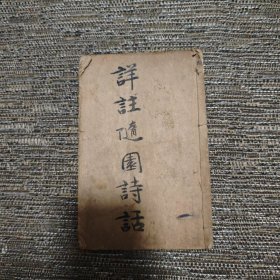 詳註隨園詩話
一